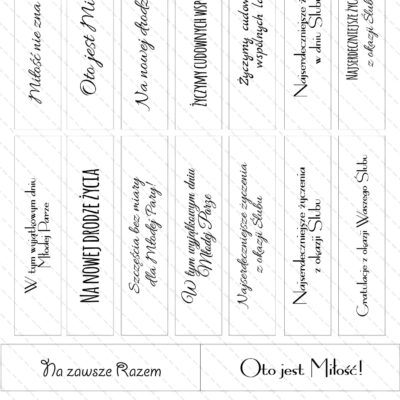 Miłość nie zna
Oto jest Mi
Na nowej drodz
ŻYCZYMY CUDOWNYCH WSP
Życzymy cudow
wspólnych l
Najserdeczniejsze ż
w dniu Ślubu
NAJSERDECZNIEJSZE ŻYCZE
z okazji Ślubu
W tym wyjątkowym dniu
Młodej Parze
NA NOWEJ DRODZE ŻYCIA
Szczęścia bez miary
dla Młodej Pary!
W tym wyjątkowym dniu
Młodej Parze
Najserdeczniejsze życzenia
z okazji Ślubu
Najserdeczniejsze życzenia
z okazji Ślubu
Gratulacje z okazji Waszego Ślubu
Na zawsze Razem
Oto jest Miłość!